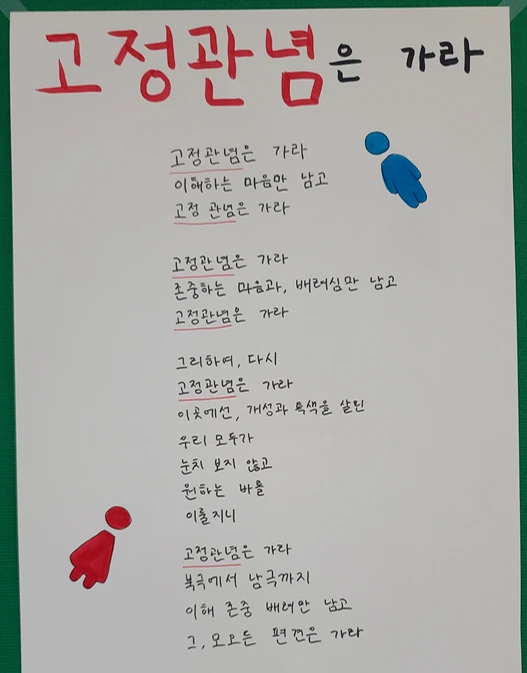 고정관념은 가라
고정관념은 가라
이해하는 마음만 남고
고정 관념은 가라
고정관념은 가라
존중하는 마음과, 배려심만 남고
고정관념은 가라
그리하여, 다시
고정관념은 가라
이곳에선, 개성과 특색을 살린
우리 모두가
눈치 보지 않고
원하는 바를
이룰지니
고정관념은 가라
북극에서 남극까지
이해 존중 배려만 남고
그, 모오든 편견은 가라